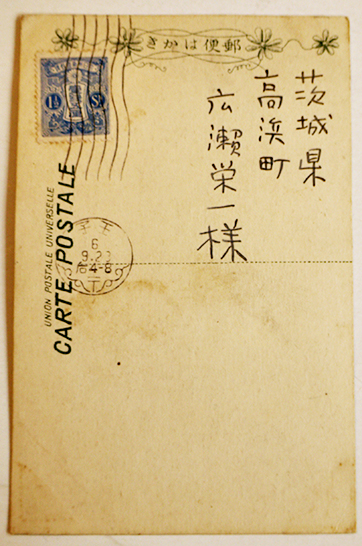 きかは便郵
茨城県
高浜町
広瀬栄一様
1½ Sn.
UNION POSTALE UNIVERSELLE
CARTE POSTALE
王子
6
9.23
后4-8